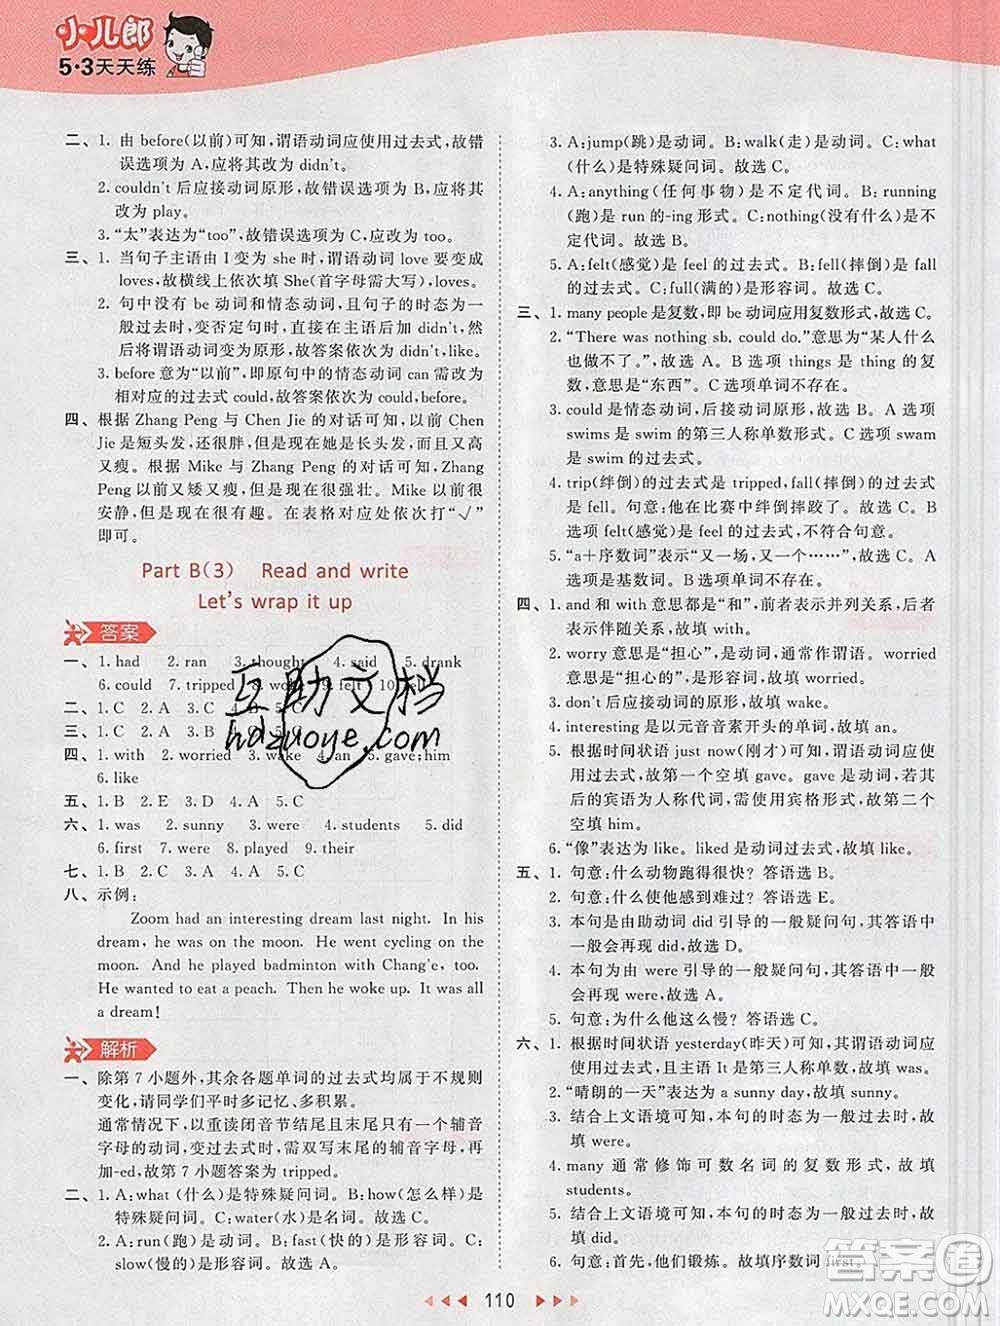 小儿郎
5·3天天练
二、1. 由 before(以前)可知,谓语动词应使用过去式,故错
误选项为 A,应将其改为 didn't。
2. couldn't 后应接动词原形,故错误选项为 B,应将其
改为 play。
3. “太”表达为“too”,故错误选项为 C,应改为 too。
三、1. 当句子主语由 I 变为 she 时,谓语动词 love 要变成
loves,故横线上依次填 She(首字母需大写),loves。
2. 句中没有 be 动词和情态动词,且句子的时态为一
般过去时,变否定句时,直接在主语后加 didn't,然
后将谓语动词变为原形,故答案依次为 didn't,like。
3. before 意为“以前”,即原句中的情态动词 can 需改为
相对应的过去式 could,故答案依次为 could,before。
四、根据 Zhang Peng 与 Chen Jie 的对话可知,以前 Chen
Jie 是短头发,还很胖,但是现在她是长头发,而且又高
又瘦。根据 Mike 与 Zhang Peng 的对话可知,Zhang
Peng 以前又矮又瘦,但是现在很强壮。Mike 以前很
安静,但是现在很有趣。在表格对应处依次打“√”
即可。
Part B(3) Read and write
Let's wrap it up
答案
一、1. had 2. ran 3. thought 4. said 5. drank
6. could 7. tripped 8. wo 9. felt 10.
二、1. C 2. A 3. C 4. B 5. C
三、1. C 2. A 3. B 4. B 5. C
四、1. with 2. worried 3. wake 4. an 5. gave;him
6. like
五、1. B 2. E 3. D 4. A 5. C
六、1. was 2. sunny 3. were 4. students 5. did
6. first 7. were 8. played 9. their
七、1. B 2. C 3. A 4. A 5. C
八、示例:
Zoom had an interesting dream last night. In his
dream, he was on the moon. He went cycling on the
moon. And he played badminton with Chang'e, too.
He wanted to eat a peach. Then he woke up. It was all
a dream!
解析
一、除第 7 小题外,其余各题单词的过去式均属于不规则
变化,请同学们平时多记忆、多积累。
通常情况下,以重读闭音节结尾且末尾只有一个辅音
字母的动词,变过去式时,需双写末尾的辅音字母,再
加-ed,故第 7 小题答案为 tripped。
二、1. A:what (什么)是特殊疑问词。B:how(怎么样)是
特殊疑问词。C:water(水)是名词。故选 C。
2. A:run(跑)是动词。B:fast(快的)是形容词。C:
slow(慢的)是形容词。故选 A。
3. A:jump(跳)是动词。B:walk(走)是动词。C:what
(什么)是特殊疑问词。故选 C。
4. A:anything(任何事物)是不定代词。B:running
(跑)是 run 的-ing 形式。C:nothing(没有什么)是不
定代词。故选 B。
5. A:felt(感觉)是 feel 的过去式。B:fell(摔倒)是 fall
的过去式。C:full(满的)是形容词。故选 C。
三、1. many people 是复数,即 be 动词应用复数形式,故选 C。
2. “There was nothing sb. could do.”意思为“某人什么
也做不了。”,故选 A。B 选项 things 是 thing 的复
数,意思是“东西”。C 选项单词不存在。
3. could 是情态动词,后接动词原形,故选 B。A 选项
swims 是 swim 的第三人称单数形式。C 选项 swam
是 swim 的过去式。
4. trip(绊倒)的过去式是 tripped,fall(摔倒)的过去式
是 fell。句意:他在比赛中绊倒摔跤了。故选 B。C
选项 felt(感觉)是 feel 的过去式,不符合句意。
5. “a+序数词”表示“又一场,又一个……”,故选 C。A
选项是基数词。B 选项单词不存在。
四、1. and 和 with 意思都是“和”,前者表示并列关系,后者
表示伴随关系,故填 with。
2. worry 意思是“担心”,是动词,通常作谓语。worried
意思是“担心的”,是形容词,故填 worried。
3. don't 后应接动词的原形,故填 wake。
4. interesting 是以元音音素开头的单词,故填 an。
5. 根据时间状语 just now(刚才)可知,谓语动词应使
用过去式,故第一个空填 gave。gave 是动词,其后
的宾语为人称代词时,应使用宾格形式,故第二个
空填 him。
6. “像”表达为 like。liked 是动词过去式,故填 like。
五、1. 句意:什么动物跑得很快?答语选 B。
2. 句意:什么使他感到难过?答语选 E。
3. 本句是由助动词 did 引导的一般疑问句,其答语中
一般会再现 did,故选 D。
4. 本句为由 were 引导的一般疑问句,其答语中一般
会再现 were,故选 A。
5. 句意:为什么他这么慢?答语选 C。
六、1. 根据时间状语 yesterday(昨天)可知,谓语动词应
使用过去式,且主语 It 是第三人称单数,故填 was。
2. “晴朗的一天”表达为 a sunny day,故填 sunny。
3. 结合上文语境可知,本句的时态为一般过去时,故
填 were。
4. many 通常修饰可数名词的复数形式,故填
students。
5. 结合上文语境可知,本句的时态为一般过去时,故
填 did。
6. 句意:首先,他们锻炼。故填序数词 first。
110
互助文档
hdzuoye.com
答案圈
MXQE.COM